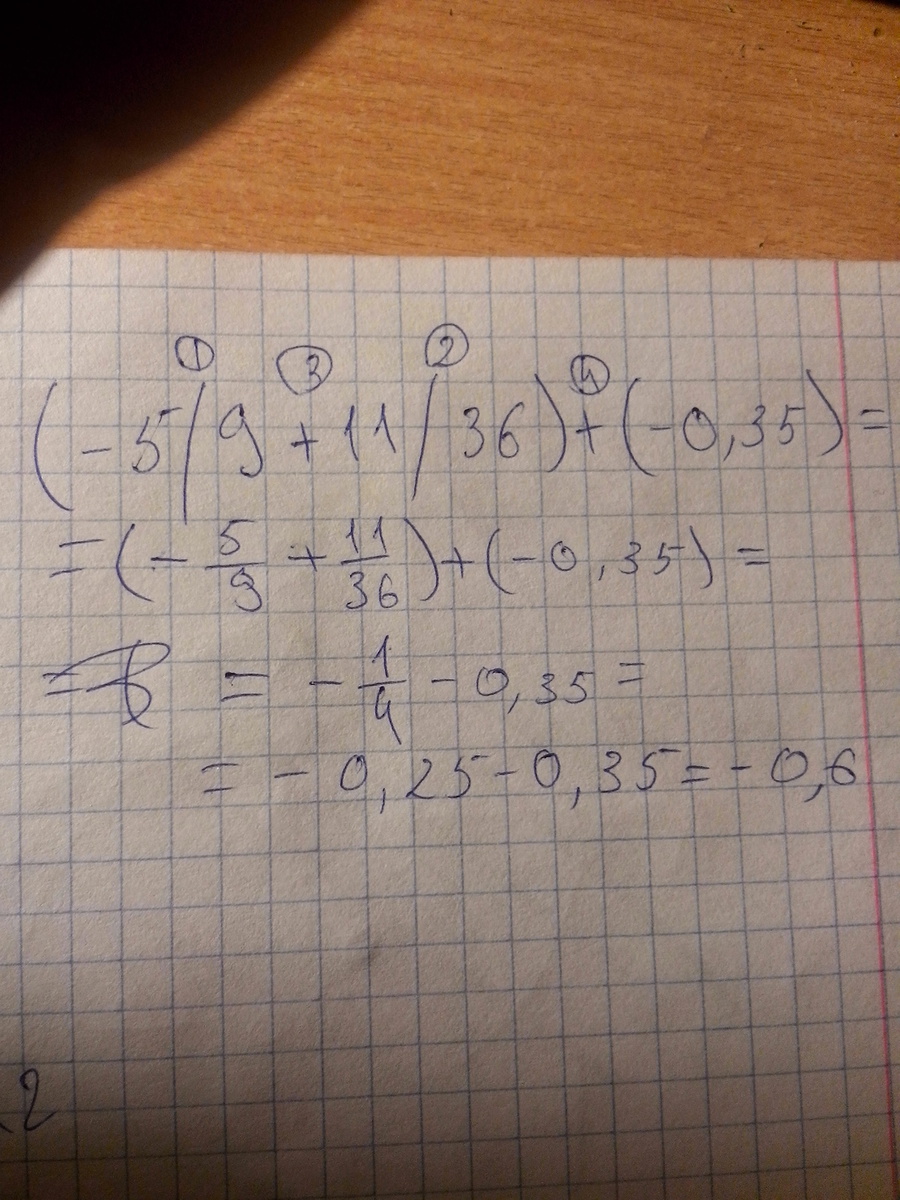 ① ③ ② ④
(-5/9+11/36)+(-0,35)=
=(-5/9+11/36)+(-0,35)=
=-1/4-0,35=
=-0,25-0,35=-0,6
2